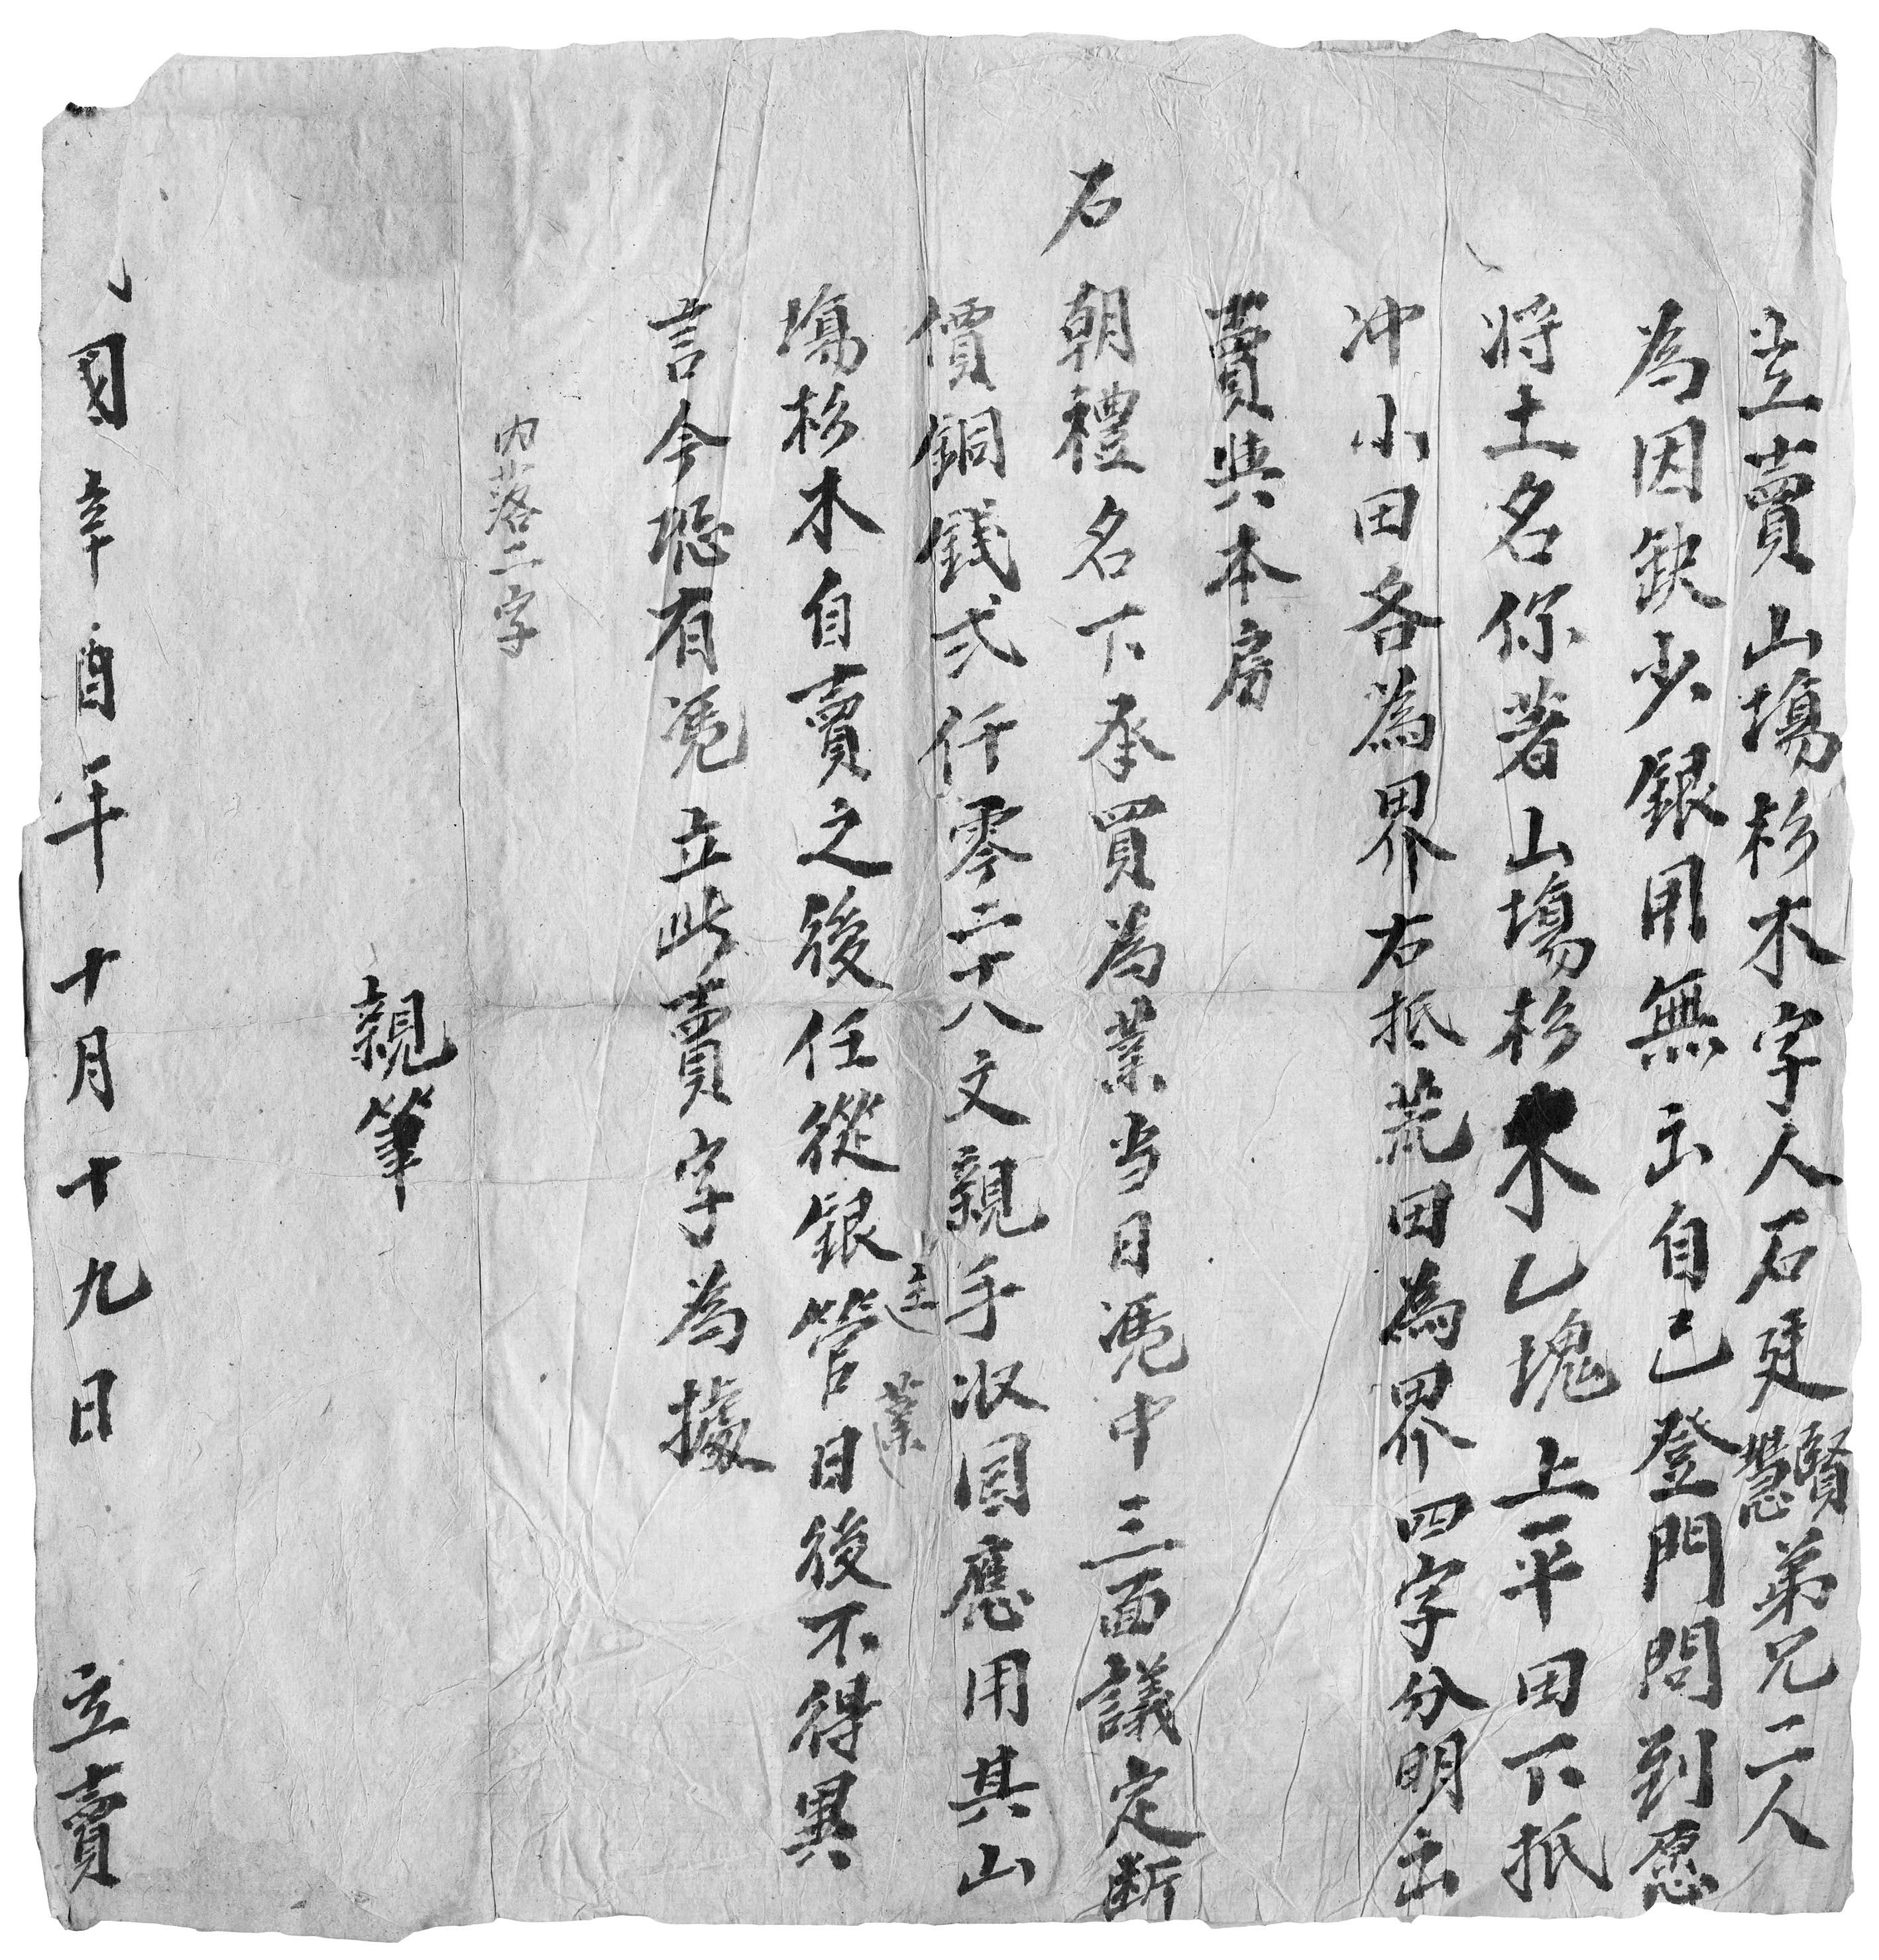 立賣山塲杉木字人石廷賢慧弟兄二人
為因缺少銀用無出自己登門問到愿
將土名你著山塲杉木乙塊上平田下抵
冲小田各為界右抵荒田為界四字分明出
賣與本房
石朝禮名下承買為業当日凴中三面議定断
價銅錢弍仟零二十八文親手収囬應用其山
塲杉木自賣之後任從銀主管業日後不得異
言今恐有凴立此賣字為據
内落二字
親筆
國辛酉年十月十九日立賣